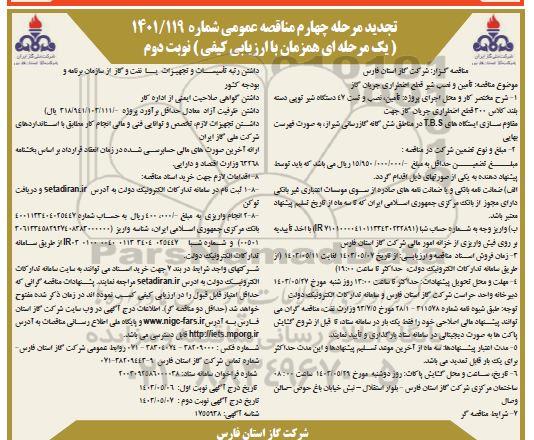 تجدید مرحله چهارم مناقصه عمومی شماره ۱۴۰۱/۱۱۹
( یک مرحله ای همزمان با ارزیابی کیفی ) نوبت دوم
مناقصه گزار: شرکت گاز استان فارس
موضوع مناقصه: تأمین و نصب شیر قطع اضطراری جریان گاز
۱- شرح مختصر کار و محل اجرای پروژه: تأمین، نصب و تست ۴۷ دستگاه شیر توپی دسته
بلند کلاس ۳۰۰ قطع اضطراری جریان گاز جهت
مقاوم سازی ایستگاه های T.B.S در مناطق شش گانه گازرسانی شیراز، به صورت فهرست
بهایی
۲- مبلغ و نوع تضمین شرکت در مناقصه :
مبلغ تضمین حداقل به مبلغ -/۱۵/۹۵۰/۰۰۰/۰۰۰ ریال می باشد که باید توسط
پیشنهاد دهنده به یکی از صورتهای ذیل اقدام گردد.
الف) ضمانت نامه بانکی و یا ضمانت نامه های صادره از سوی موسسات اعتباری غیر بانکی
دارای مجوز از بانک مرکزی جمهوری اسلامی ایران که تا سه ماه از تاریخ تسلیم پیشنهاد
معتبر باشد.
ب) واریز وجه به شماره حساب شبا با اخذ تأییدیه
بر روی فیش واریزی از خزانه امور مالی شرکت گاز استان فارس
۳- زمان فروش اسناد مناقصه و ارزیابی: از تاریخ ۱۴۰۳/۰۵/۰۷ لغایت ۱۴۰۳/۰۵/۱۱ (از
طریق سامانه تدارکات الکترونیک دولت، حداکثر تا ساعت ۱۹:۰۰)
۴- مهلت و محل تحویل پیشنهادات: حداکثر تا ساعت ۱۳:۰۰ روز شنبه مورخ ۱۴۰۳/۰۵/۲۷
دبیرخانه واحد حراست شرکت گاز استان فارس و سامانه تدارکات الکترونیک دولت
توجه: طبق شیوه نامه شماره ۲۸۱۰ - ۳۱۱۵۲۸ مورخ ۹۳/۷/۵ وزارت نفت، مناقصه گران می
توانند پیشنهاد مالی اصلاحی خود را فقط یک بار در سامانه ستاد، تا قبل از شروع گشایش
پاکت ها به صورت دیجیتالی در سامانه ستاد بارگذاری و تأیید نمایند.
۵- مدت اعتبار پیشنهادها: سه ماه از آخرین موعد تسلیم پیشنهادها و این مدت حداکثر
برای یک بار قابل تمدید می باشد.
۶- تاریخ، ساعت و محل گشایش پاکات: روز دوشنبه مورخ ۱۴۰۳/۰۵/۲۹ ساعت ۰۸:۰۰
ساختمان مرکزی شرکت گاز استان فارس - بلوار استقلال - نبش خیابان باغ حوض - سالن
وصال
۷- شرایط مناقصه گر
داشتن رتبه تأسیسات و تجهیزات یا نفت و گاز از سازمان برنامه و
بودجه کشور
داشتن گواهی صلاحیت ایمنی از اداره کار
داشتن ظرفیت آزاد معادل حداقل برآورد پروژه
داشتن تجهیزات لازم، تخصص و توانایی فنی و مالی انجام کار مطابق با استانداردهای
شرکت ملی گاز ایران
ارائه آخرین صورت های مالی حسابرسی شده در زمان انعقاد قرارداد بر اساس بخشنامه
۶۲۲۶۸ وزارت اقتصاد و دارایی.
۸- اقدامات لازم جهت خرید اسناد مناقصه:
۸-۱- ثبت نام در سامانه تدارکات الکترونیک دولت به آدرس setadiran.ir و دریافت
توکن
۸-۲- انجام واریزی به مبلغ -/۴۰۰/۰۰۰ ریال به حساب شماره
بانک مرکزی جمهوری اسلامی ایران، شناسه واریز
و شماره شبا از طریق سامانه
تدارکات الکترونیک دولت.
شرکتهای واجد شرایط در بند ۷ جهت خرید اسناد می توانند به سایت سامانه تدارکات
الکترونیک دولت به آدرس setadiran.ir مراجعه نمایند. پیشنهادات مناقصه گرانی که
حداقل امتیاز قابل قبول را در ارزیابی کیفی کسب نموده اند در زمان ذکر شده مفتوح
خواهد شد (حداقل دو مناقصه گر). اطلاعات درج آگهی در وب سایت شرکت گاز استان
فارس به آدرس www.nigc-fars.ir و پایگاه ملی اطلاع رسانی مناقصات به آدرس
http://iets.mporg.ir قابل دسترسی می باشد.
روابط عمومی شرکت گاز استان فارس-
شماره تماس شرکت گاز استان فارس
شماره فراخوان سامانه ستاد:
تاریخ درج آگهی نوبت اول: ۱۴۰۳/۰۵/۰۶
تاریخ درج آگهی نوبت دوم: ۱۴۰۳/۰۵/۰۷
شناسه آگهی: ۱۷۵۵۹۳۸
شرکت گاز استان فارس